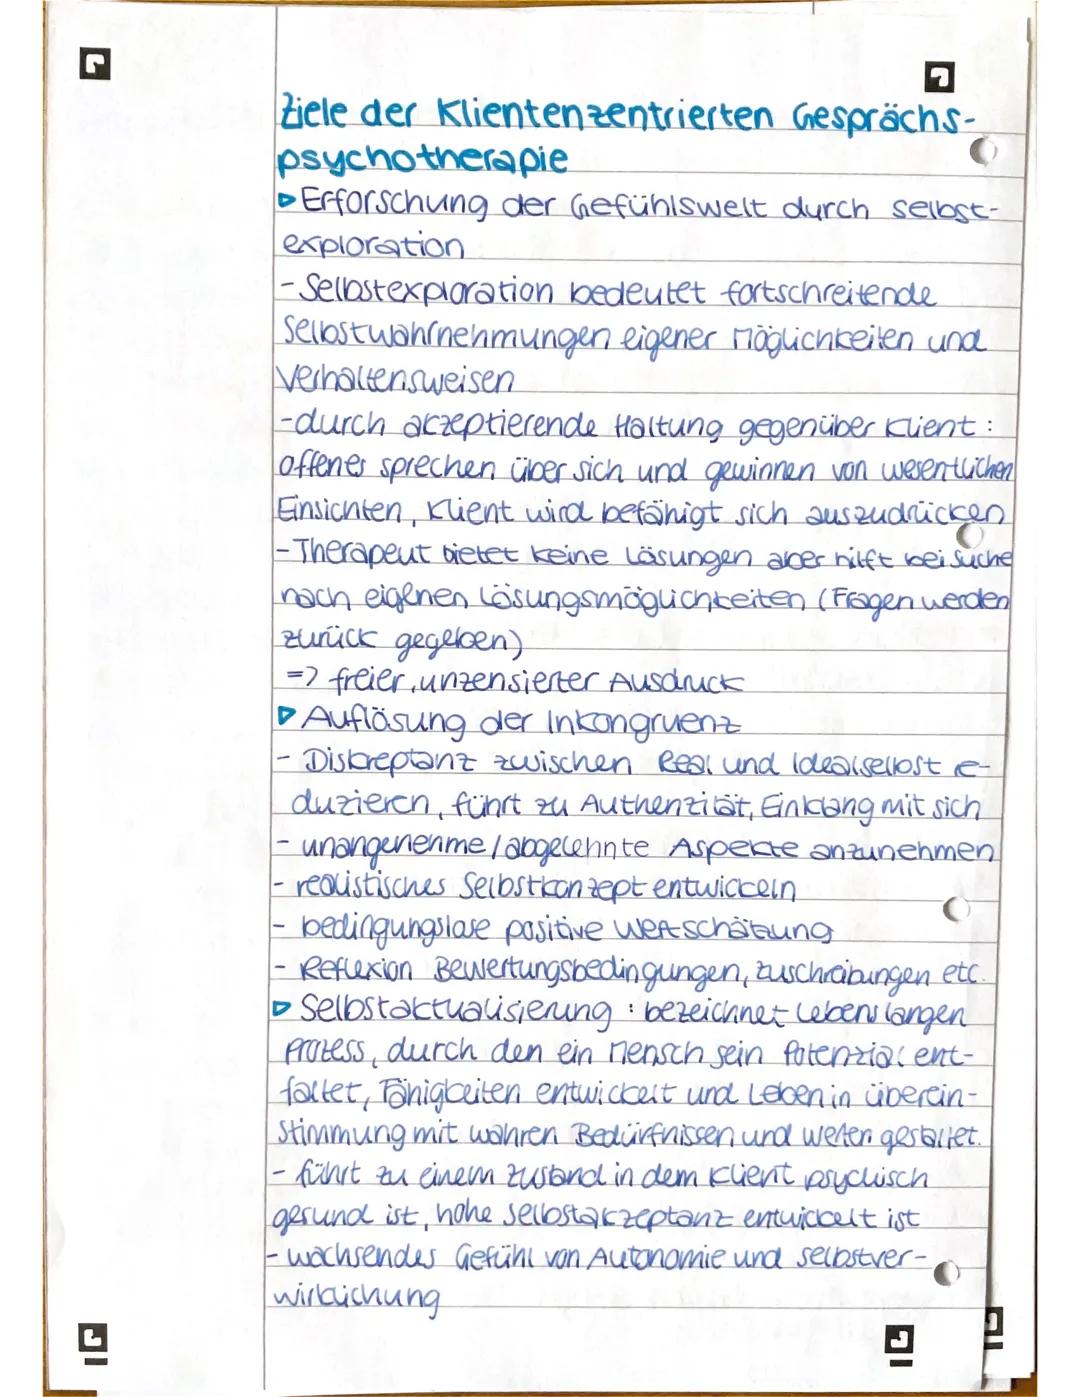 Ziele der Klientenzentrierten Gesprächs-
psychotherapie
▷ Erforschung der Gefühlswelt durch selbst-
exploration
- Selbstexploration bedeutet fortschreitende
Selbstwahrnehmungen eigener Möglichkeiten und
Verhaltensweisen
- durch akzeptierende Haltung gegenüber Klient :
offenes sprechen über sich und gewinnen von wesentlichen
Einsichten, Klient wird befähigt sich auszudrücken
- Therapeut bietet keine Lösungen aber hilft bei Suche
nach eigenen Lösungsmöglichkeiten (Fragen werden
zurück gegeben)
=> freier, unzensierter Ausdruck
▷ Auflösung der Inkongruenz
- Diskreptanz zwischen Real und Idealselbst re-
duzieren, führt zu Authenzität, Einklang mit sich
- unangenehme / abgelehnte Aspekte anzunehmen
- realistisches Selbstkonzept entwickeln
- bedingungslose positive Wertschätzung
- Reflexion Bewertungsbedingungen, zuschreibungen etc.
▷ Selbstaktualisierung : bezeichnet Lebenslangen
Prozess, durch den ein Mensch sein Potenzial ent-
faltet, Fähigkeiten entwickelt und Leben in überein-
stimmung mit wahren Bedürfnissen und werten gestaltet.
- führt zu einem Zustand in dem Klient psychisch
gesund ist, hohe selbstakzeptanz entwickelt ist
- wachsendes Gefühl von Autonomie und selbstver-
wirklichung